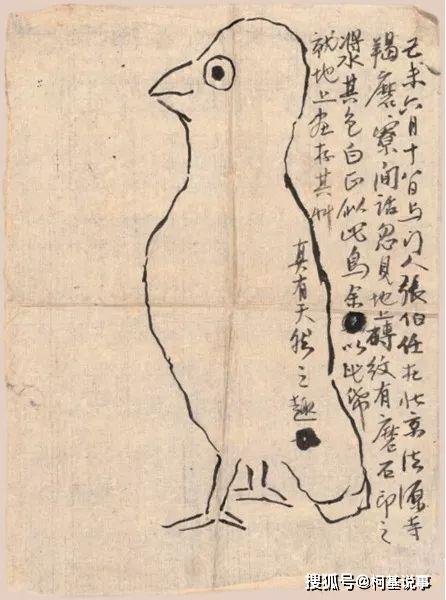 己未六月十八日与门人張伯任在北京法源寺
羯磨寮間話忽見地上磚紋有磨石印之
漿水其色白正似此鳥余以此紙
就地上畫存其艸
真有天然之趣
搜狐号@柯基说事